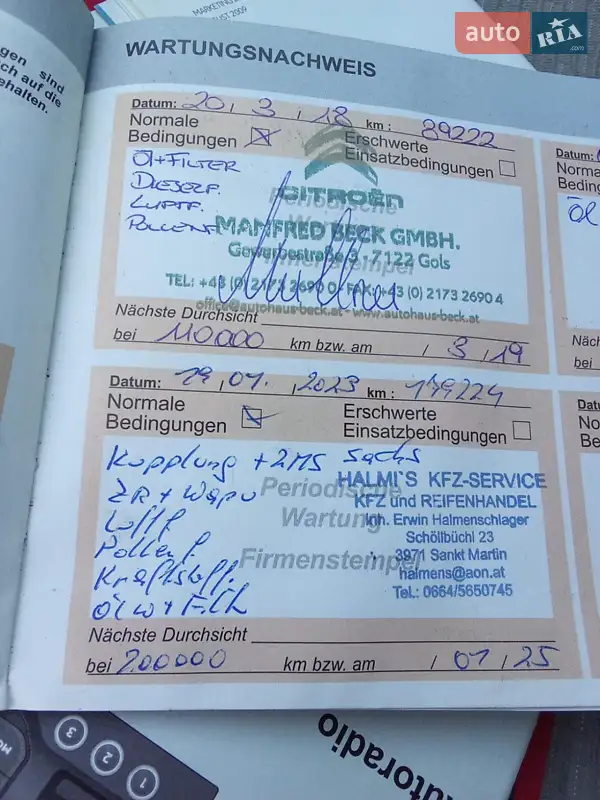 MARKETING
UST 2009
auto RIA .com
gen sind
ch auf die
ehalten.
WARTUNGSNACHWEIS
Datum: 20, 3, 18 km: 89222
Normale
Bedingungen
Erschwerte
Einsatzbedingungen
Öl+FILTER
DIESELF.
LUFTF.
POLLENF
CITROËN
Periodische
MANFRED BECK GMBH.
Gewerbestraße 3 · 7122 Gols
Firmenstempel
TEL: +43 (0) 2173 2690 0 · FAX: +43 (0) 2173 2690 4
office@autohaus-beck.at - www.autohaus-beck.at
Nächste Durchsicht
bei 110000 km bzw. am / 3 / 19
Datum: 19, 01. , 2023 km: 179224
Normale
Bedingungen
Erschwerte
Einsatzbedingungen
Kupplung + ZMS Sachs
ZR + Wapu
Luftf
Pollenf.
Kraftstoff.
Ölw + Filt
Periodische
Wartung
Firmenstempel
HALMI'S KFZ-SERVICE
KFZ und REIFENHANDEL
Inh. Erwin Halmenschlager
Schöllbüchl 23
3971 Sankt Martin
halmens@aon.at
Tel.: 0664/5650745
Nächste Durchsicht
bei 200000 km bzw. am / 01 / 25
Datum:
Norma
Beding
Öl
Näch
bei
Datu
No
Be
Nä
be
1
2
3
utoradio